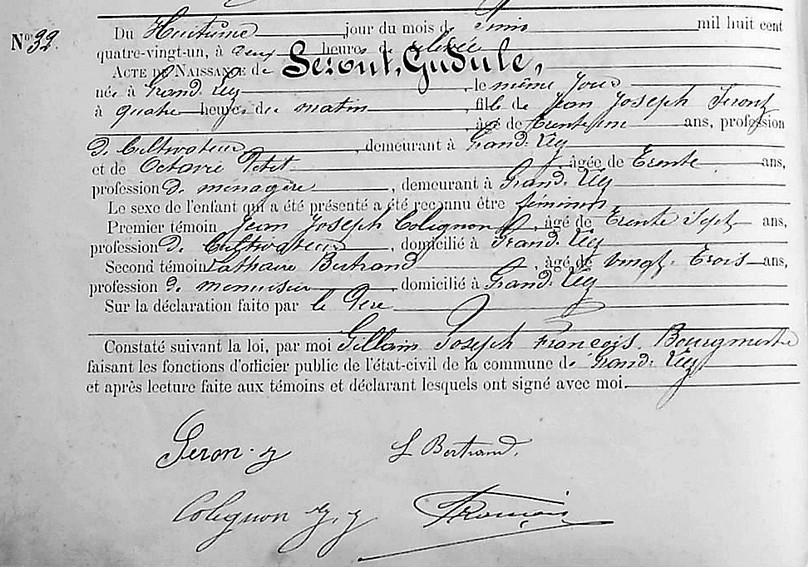 N° 32. Du Huitième jour du mois de Juin mil huit cent
quatre-vingt-un, à deux heures de relevée
ACTE DE NAISSANCE de Seront, Gudule,
née à Grand-Leg, le même jour
à quatre heures du matin, fille de Jean Joseph Seront
âgé de trente-un ans, profession
de Cultivateur, demeurant à Grand-Leg
et de Octavie Petit, âgée de Trente ans,
profession de ménagère, demeurant à Grand-Leg
Le sexe de l'enfant qui a été présenté a été reconnu être féminin
Premier témoin Jean Joseph Colignon, âgé de Trente Sept ans,
profession de Cultivateur, domicilié à Grand-Leg
Second témoin Bertrand, âgé de vingt-Trois ans,
profession de menuisier, domicilié à Grand-Leg
Sur la déclaration faite par le Père
Constaté suivant la loi, par moi Gillain Joseph François, Bourgmestre
faisant les fonctions d'officier public de l'état-civil de la commune de Grand-Leg
et après lecture faite aux témoins et déclarant lesquels ont signé avec moi.
Seron. J L Bertrand.
Colignon J. J François